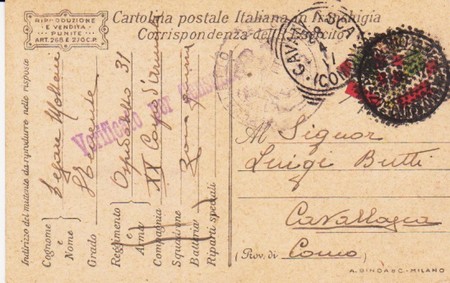 RIPRODUZIONE
E VENDITA
PUNITE
ART. 265 E 270 C.P.
Cartolina postale Italiana in franchigia
Corrispondenza dell'Esercito
Verificato per censura
CAVA
(COMO)
Al Signor
Luigi Butti
Cavallasca
(Prov. di) Como
A. BINDA & C. - MILANO
Indirizzo del mittente da riprodurre nelle risposte
Cognome
e
Nome
Grado
Reggimento
e
Arma
Ospedaletto 31
Compagnia
XV Corpo d'Armata
Squadrone
Batteria
Zona guerra
Riparti speciali